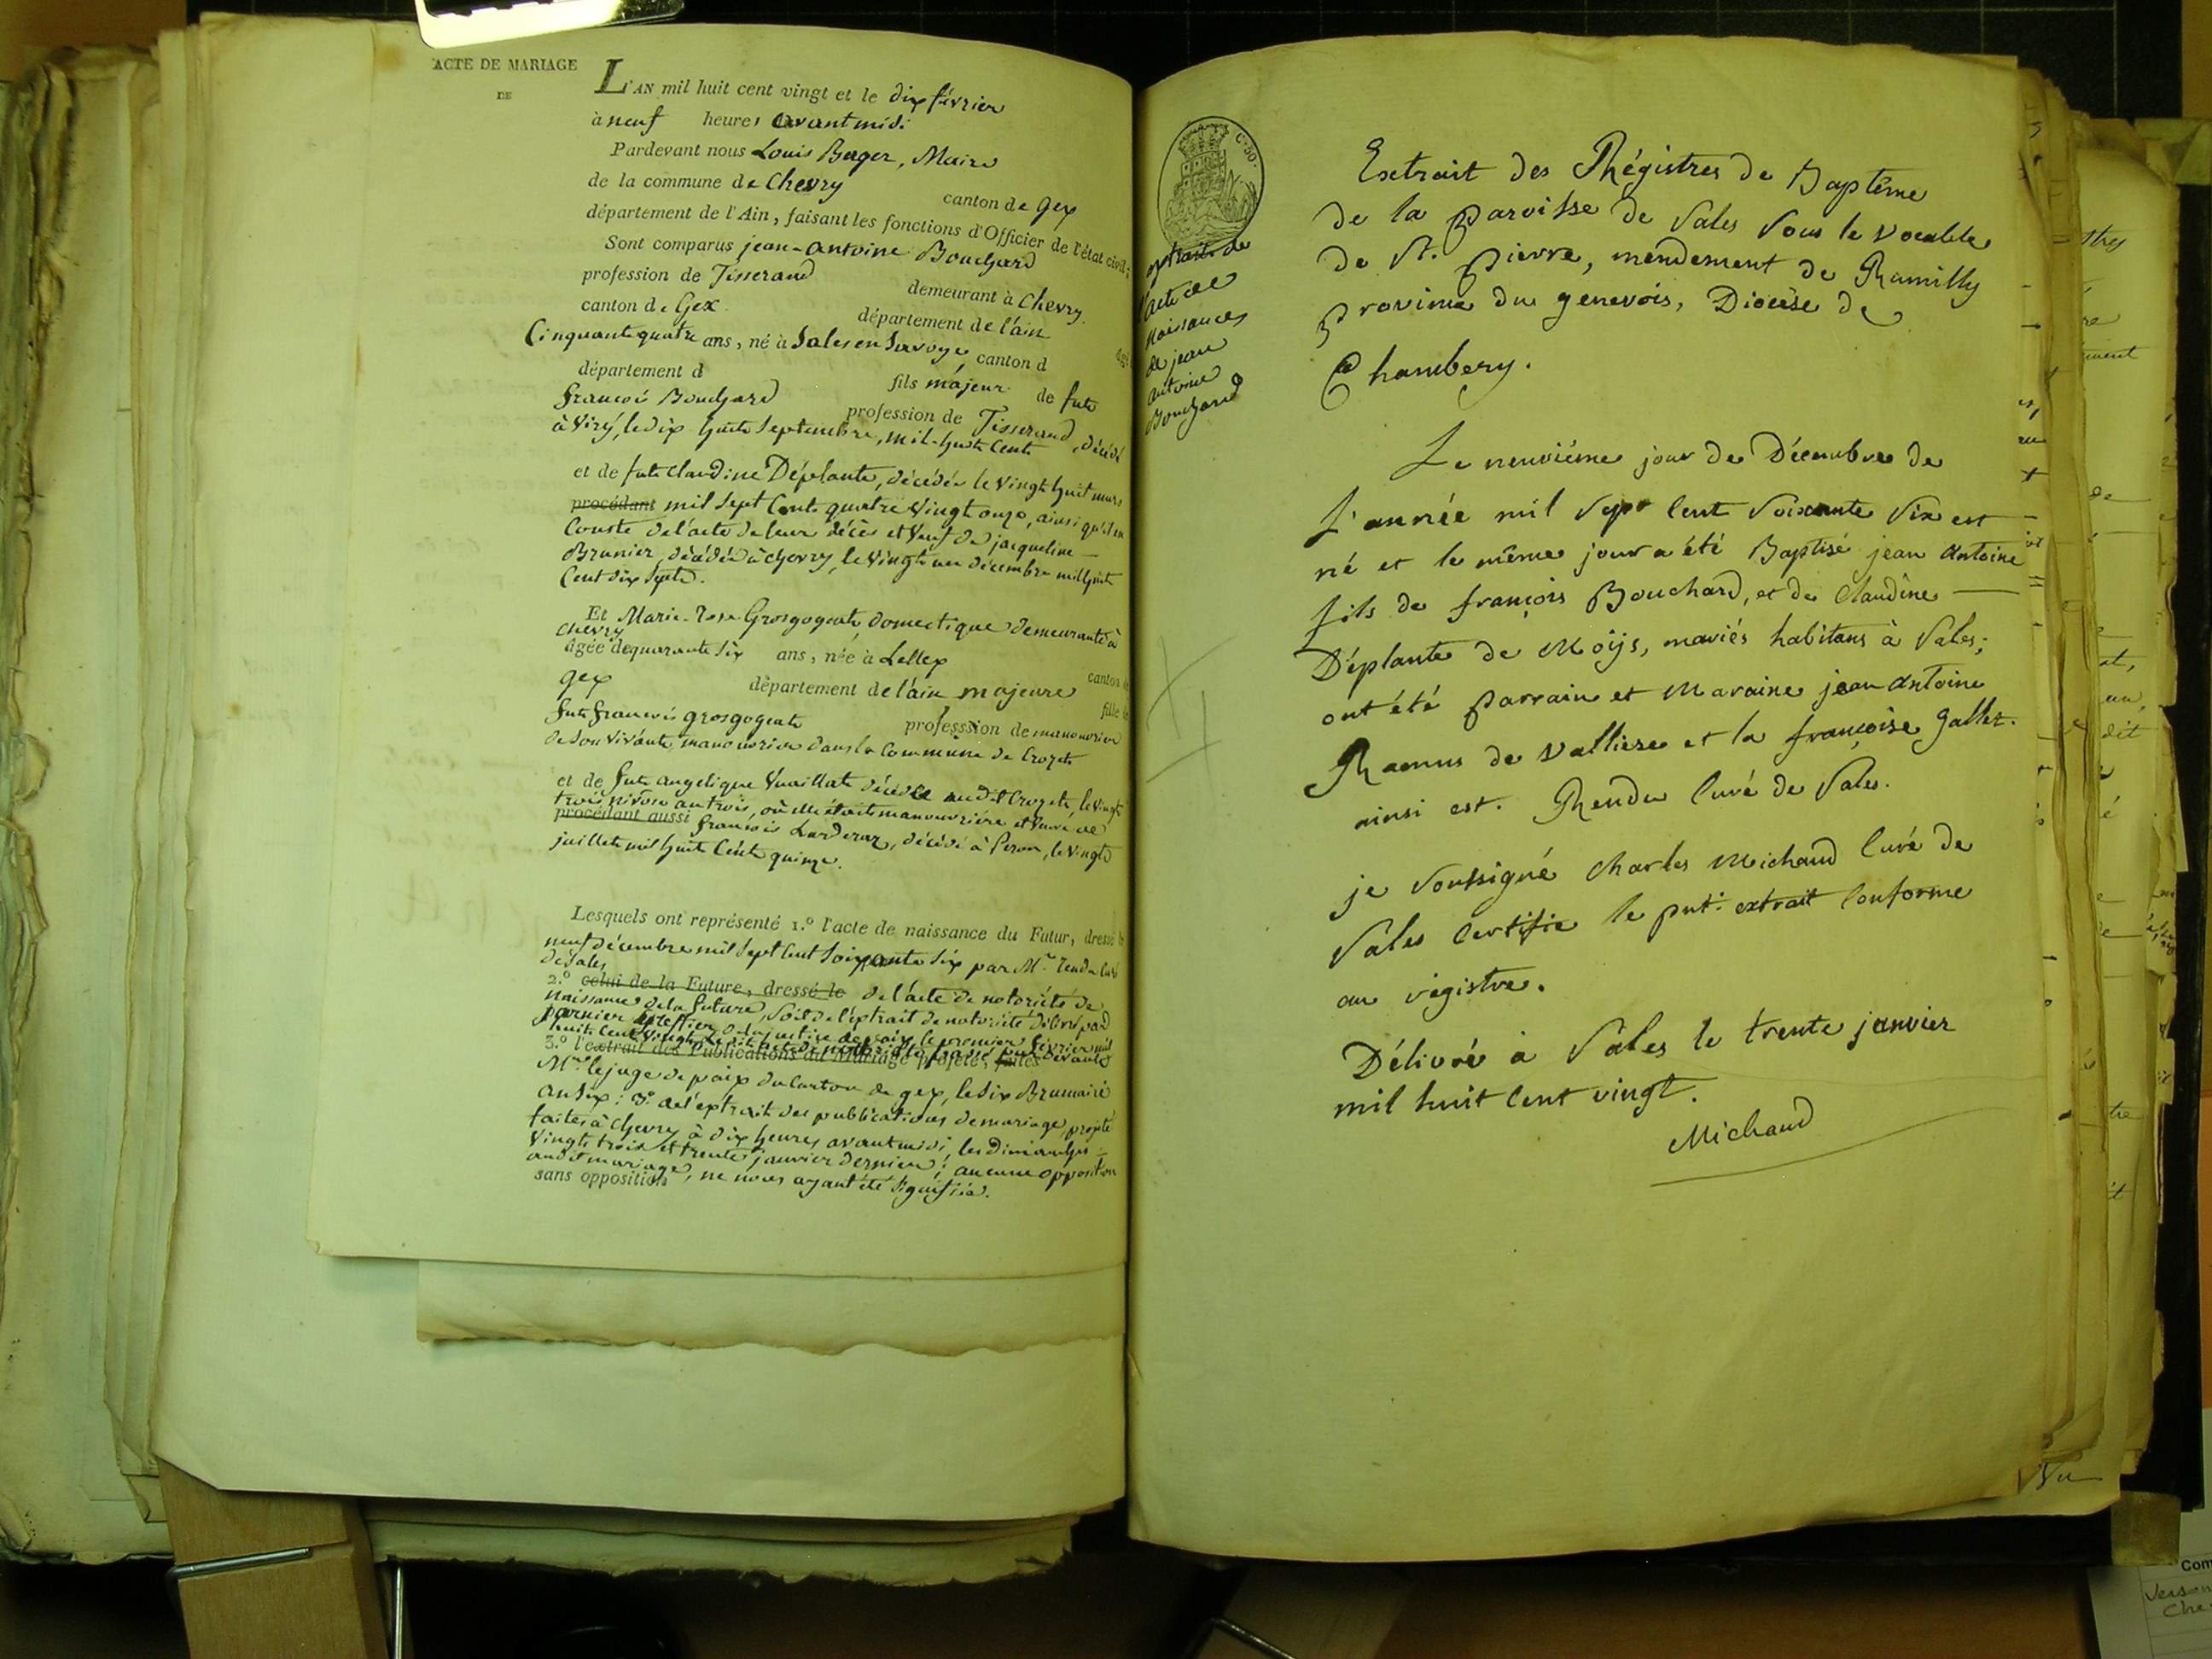 ACTE DE MARIAGE
DE
L'AN mil huit cent vingt et le dix février
à neuf heures avant midi
Pardevant nous Louis Berger, Maire
de la commune de Chevry canton de Gex
département de l'Ain, faisant les fonctions d'Officier de l'état civil;
Sont comparus jean-antoine Bouchard
profession de Tisserand demeurant à Chevry
canton de Gex département de l'ain
Cinquante quatre ans, né à Sales en Savoye canton d
département d fils majeur de fut
françois Bouchard profession de Tisserand, décédé
à Viry, le dix huit Septembre, mil-huit Cent
et de fute Claudine Déplante, décédée le Vingt huit mars
procédant mil Sept Cent quatre Vingt onze, ainsi qu'il en
Conste de l'acte de leur décès et Veuf de jacqueline
Brunier, décédée à chevry, le Vingt un décembre mil huit
Cent dix Sept.
Et Marie-Rose Grosgogeat, domestique demeurante à
Chevry
âgée de quarante Six ans, née à Lellex canton de
gex département de l'ain majeure fille de
fut françois grosgogeat profession de manouvrier
de son Vivant, manouvrier dans la Commune de Crozet
et de fute angelique Vuaillat décédée audit Crozet, le Vingt
trois nivose an trois, où elle étoit manouvrière et Veuve de
procédant aussi françois Larderaz, décédé à Peron, le Vingt
juillet mil huit Cent quinze.
Lesquels ont représenté 1.° l'acte de naissance du Futur, dressé le
neuf décembre mil Sept Cent Soixante Six par Mr. Rendu Curé
de Sales
2.° celui de la Future, dressé le de l'acte de notoriété de
naissance de la future, Soit de l'extrait de notoriété délivré par
parnier greffier de la justice de paix le premier février mil
huit Cent Vingt
3.° l'extrait des Publications du Mariage projeté, faites devant
Mr. le juge de paix du Canton de gex, le dix Brumaire
an dix: 3.° de l'extrait des publications de mariage, projeté
faites à Chevry à dix heures avant midi, les dimanches
Vingt trois et trente janvier dernier; aucune opposition
audit mariage, ne nous ayant été Signifiée.
sans opposition
C. 50.
extrait de
l'acte de
naissance
de jean
antoine
Bouchard
Extrait des Régistres de Baptême
de la paroisse de Sales Sous le vocable
de St. pierre, mendement de Rumilly
province du genevois, Diocèse de
Chambery.
Le neuvième jour de Décembre de
L'année mil Sept Cent Soixante Six est
né et le même jour a été Baptisé jean Antoine
fils de françois Bouchard, et de Claudine
Déplante de Moÿs, mariés habitans à Sales;
ont été parrain et Maraine jean Antoine
Ramus de Valliere et la françoise Gallet.
ainsi est. Rendu Curé de Sales.
je Soussigné Charles Michaud Curé de
Sales Certifie le pnt. extrait Conforme
au régistre.
Délivré à Sales le trente janvier
mil huit Cent vingt.
Michaud
Vu
Com